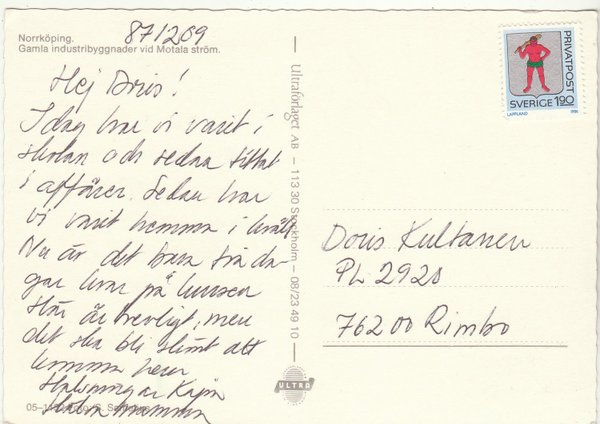 Norrköping.
Gamla industribyggnader vid Motala ström.
871209
Hej Doris!
Idag har vi varit i
skolan och sedan tittat
i affärer. Sedan har
vi varit hemma i kväll
Nu är det bara två da-
gar kvar på kursen
Här är trevligt, men
det ska bli skönt att
komma hem
Hälsningar Kajsa
05-11
Ultraförlaget AB — 113 30 Stockholm — 08/23 49 10
ULTRA
PRIVATPOST
SVERIGE 190
LAPPLAND
Doris Kultanen
PL 2920
76200 Rimbo